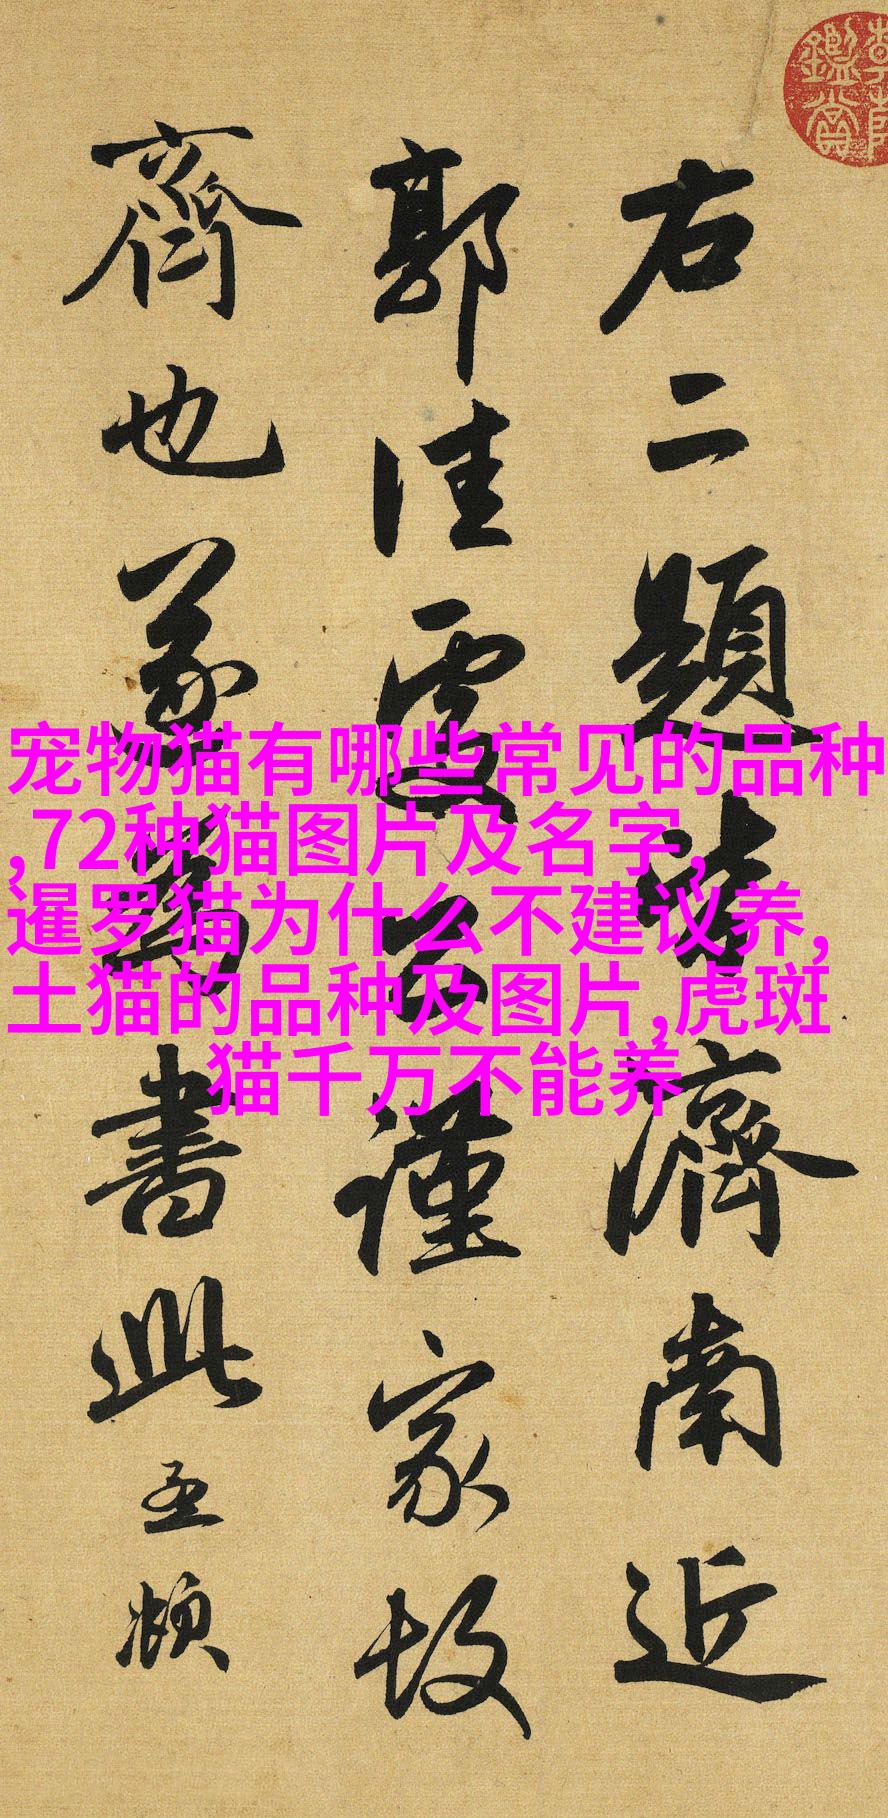 右二題皆濟南近
郭佳處公謹家故
齊也遂為書此孟頫
鑑賞
宠物猫有哪些常见的品种
,72种猫图片及名字,
暹罗猫为什么不建议养,
土猫的品种及图片,虎斑
猫千万不能养